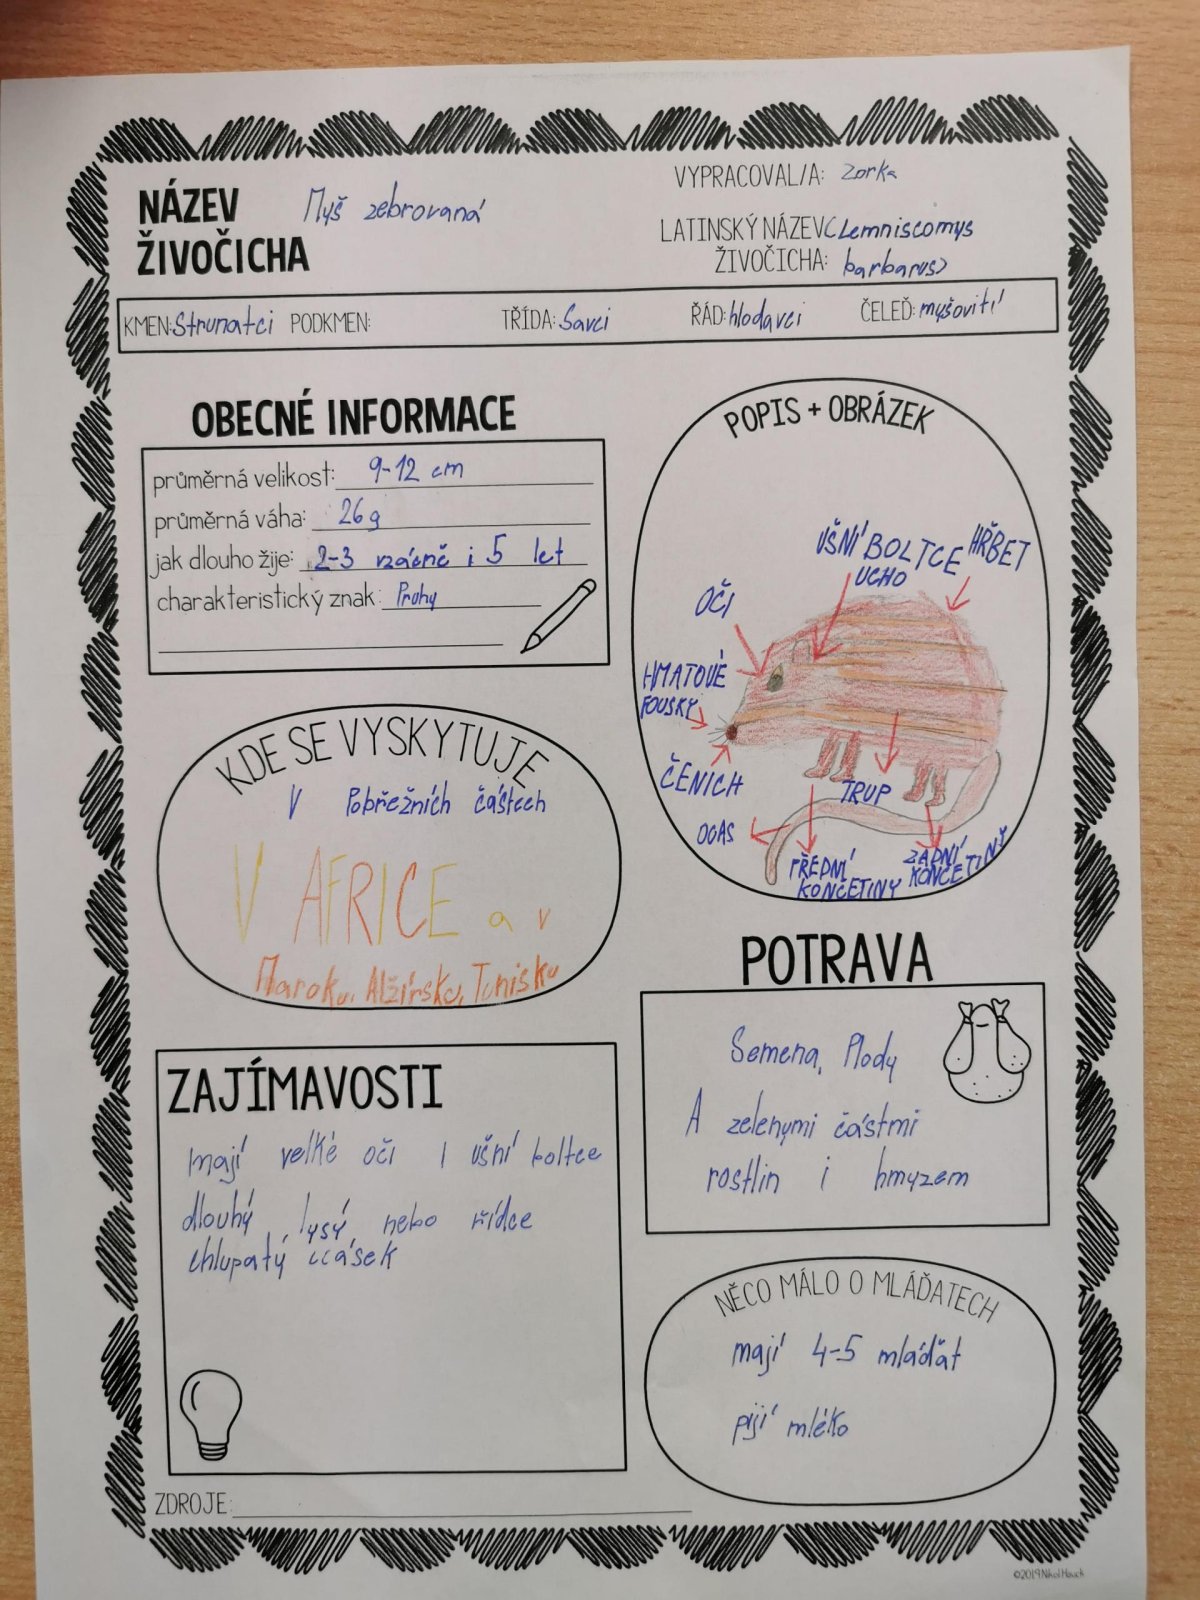 VYPRACOVAL/A: Zorka
NÁZEV ŽIVOČICHA
Myš zebrovaná
LATINSKÝ NÁZEV (Lemniscomys
ŽIVOČICHA: barbarus)
KMEN: Strunatci PODKMEN: TŘÍDA: Savci ŘÁD: hlodavci ČELEĎ: myšovití
OBECNÉ INFORMACE
průměrná velikost: 9-12 cm
průměrná váha: 26g
jak dlouho žije: 2-3 vzácně i 5 let
charakteristický znak: Pruhy
POPIS + OBRÁZEK
UŠNÍ BOLTCE
UCHO
HŘBET
OČI
HMATOVÉ
FOUSKY
ČENICH
TRUP
OCAS
PŘEDNÍ
KONČETINY
ZADNÍ
KONČETINY
KDE SE VYSKYTUJE
V Pobřežních částech
V AFRICE a v
Maroku, Alžírsku, Tunisku
POTRAVA
Semena, Plody
A zelenými částmi
rostlin i hmyzem
ZAJÍMAVOSTI
mají velké oči I ušní boltce
dlouhý, lysý, nebo řídce
chlupatý ocásek
NĚCO MÁLO O MLÁĎATECH
mají 4-5 mláďat
pijí mléko
ZDROJE:
©2019 Nikol Hauck